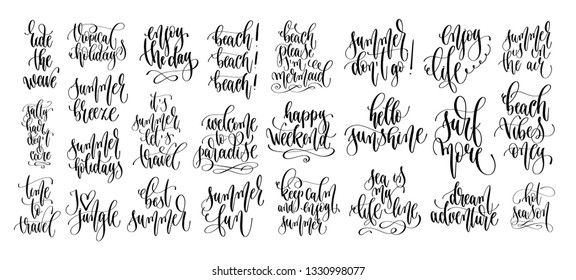 ride
the
wave
tropical
holidays
enjoy
the day
beach!
beach!
beach!
beach
please
i'm a
mermaid
summer
don't go!
enjoy
life
summer
is in
the air
salty
hair
don't
care
summer
breeze
it's
summer
let's
travel
welcome
to
paradise
happy
weekend
hello
sunshine
surf
more
beach
vibes
only
summer
holidays
time
to
travel
I
jungle
best
summer
summer
fun
keep calm
and enjoy
summer
sea is
my
life line
dream
adventure
hot
season
shutterstock.com · 1330998077